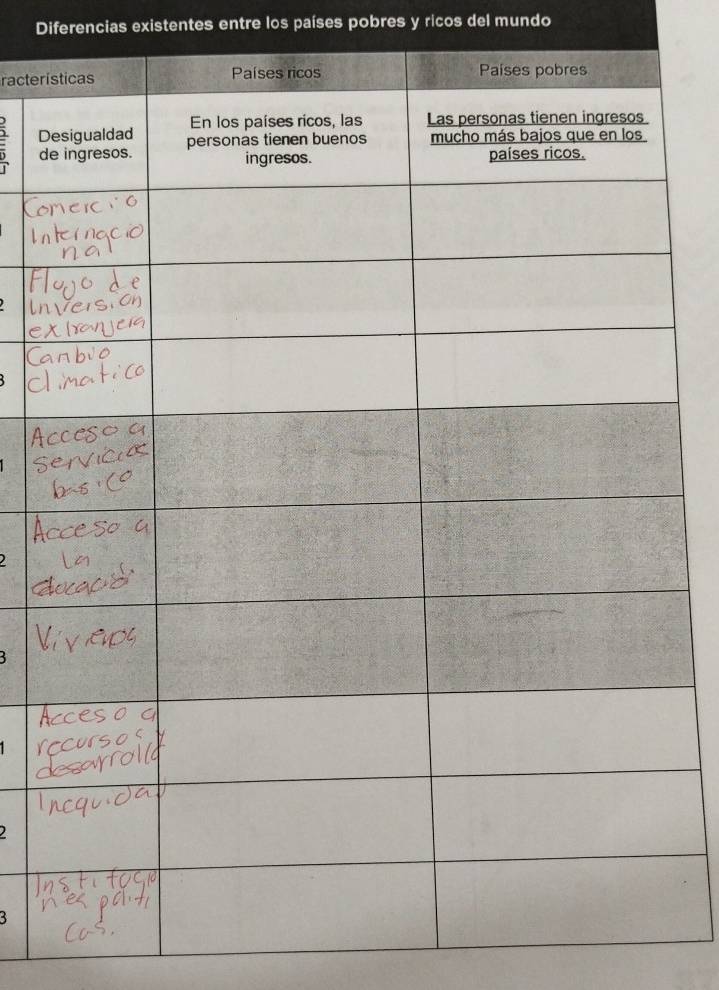 Diferencias existentes entre los países pobres y ricos del mundo
racterísticas
Países ricos
Países pobres
Desigualdad
de ingresos.
En los países ricos, las
personas tienen buenos
ingresos.
Las personas tienen ingresos
mucho más bajos que en los
países ricos.
1
Comercio
Internacio
nal
2
Flujo de
inversion
extranjera
3
Canbio
climatico
1
Acceso a
servicios
basico
2
Acceso a
la
3
1
Acceso a
recursos y
desarrollo
2
Inequidad
3
Institucio
nes politi
cas.